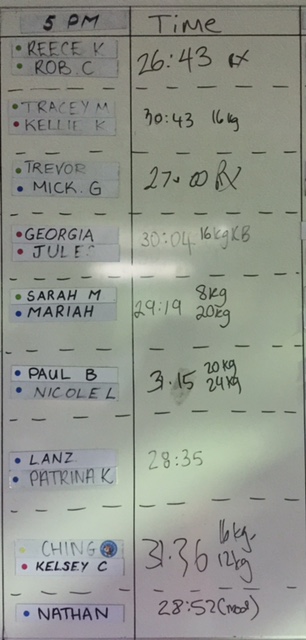 5 PM Time
REECE K
ROB C
26:43 RX
TRACEY M
KELLIE K
30:43 16kg
TREVOR
MICK. G
27.00 RX
GEORGIA
JULES
30:04 16kgKB
SARAH M
MARIAH
29:19 8kg
20kg
PAUL B
NICOLE L
31.15 20kg
24kg
LANZ
PATRINA K
28:35
CHING
KELSEY C
31.36 16kg.
12kg
NATHAN 28:52(mod)